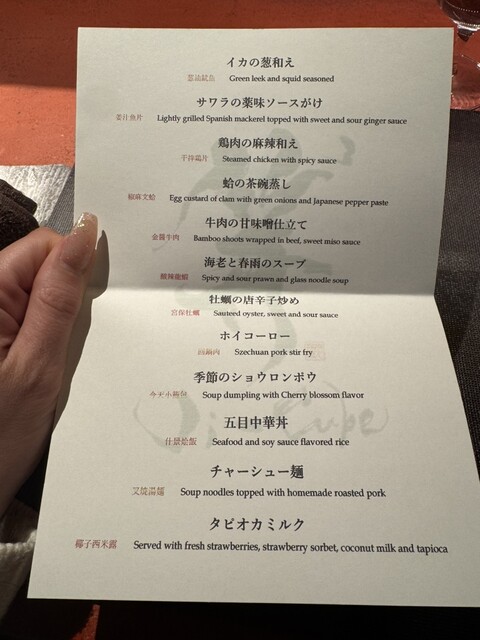 イカの葱和え
Green leek and squid seasoned
サワラの薬味ソースがけ
姜汁魚片 Lightly grilled Spanish mackerel topped with sweet and sour ginger sauce
鶏肉の麻辣和え
Steamed chicken with spicy sauce
蛤の茶碗蒸し
椒麻文蛤 Egg custard of clam with green onions and Japanese pepper paste
牛肉の甘味噌仕立て
金醤牛肉 Bamboo shoots wrapped in beef, sweet miso sauce
海老と春雨のスープ
Spicy and sour prawn and glass noodle soup
牡蠣の唐辛子炒め
宮保牡蠣 Sauteed oyster, sweet and sour sauce
ホイコーロー
回鍋肉 Szechuan pork stir fry
季節のショウロンポウ
今天小籠包 Soup dumpling with Cherry blossom flavor
五目中華丼
什景烩飯 Seafood and soy sauce flavored rice
チャーシュー麺
叉焼湯麺 Soup noodles topped with homemade roasted pork
タピオカミルク
椰子西米露 Served with fresh strawberries, strawberry sorbet, coconut milk and tapioca